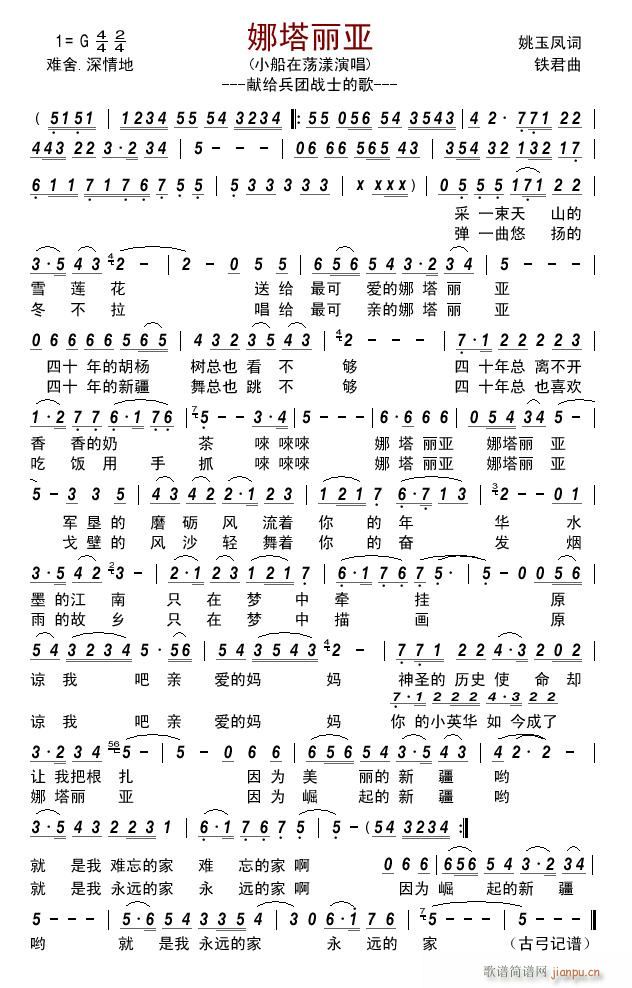 娜塔丽亚
1= G 4/4 2/4
难舍.深情地
(小船在荡漾演唱)
---献给兵团战士的歌---
姚玉凤词
铁君曲
( 5151 | 1234 55 54 3234 ‖: 55 056 54 3543 | 4 2· 771 22 |
443 22 3·2 34 | 5 - - - | 06 66 565 43 | 354 32 132 17 |
6 11 71 76 7 5 5 | 5 33 3 3 3 | x xxx ) | 05 5 5 171 22 |
采 一束天 山的
弹 一曲悠 扬的
3·5 43 42 - | 2 - 0 5 5 | 6 56 54 3·2 34 | 5 - - - |
雪 莲花 送给 最可 爱的娜塔丽 亚
冬 不 拉 唱给 最可 亲的娜塔丽 亚
06 66 6 565 | 432 354 3 | 42 - - - | 7·1 22 22 3 |
四十 年的胡杨 树总也 看 不 够 四 十年总 离不开
四十 年的新疆 舞总也 跳 不 够 四 十年总 也喜欢
1·2 77 6·1 76 | 75 - - 3·4 | 5 - - - | 6·6 66 | 054 34 5 - |
香 香的奶 茶 唻 唻唻 娜塔 丽亚 娜塔丽 亚
吃 饭用 手 抓 唻 唻唻 娜塔 丽亚 娜塔丽 亚
5 - 3·2 | 43 42 2·1 23 | 121 7 6·713 | 32 - - 01 |
军垦的 磨砺风 流着 你 的 年 华 水
戈壁的 风沙轻 舞着 你 的 奋 发 烟
3·5 42 23 - | 2·1 23 1217 | 6·1 76 75· | 5 - 0056 |
墨 的江 南 只 在 梦 中 牵 挂 原
雨 的故 乡 只 在 梦 中 描 画 原
54 3234 5· 56 | 54 343 42 - | 771 224 3·20 |
谅 我 吧 亲 爱的妈 妈 神圣的 历史 使 命 却
7·1 222 4·3 22
谅 我 吧 亲 爱的妈 妈 你 的小英华 如 今成了
3·2 34 565 - | 5 - 066 | 656 54 3·5 43 | 42·2 - |
让 我把根 扎 因为 美 丽的新 疆 哟
娜塔丽 亚 因为 崛 起的新 疆 哟
3·5 43 2231 | 6·1 76 75 | 5 - (54 3234 :‖
就 是我 难忘的家 难 忘的家 啊
066 | 656 54 3·2 34 |
就 是我 永远的家 永 远的家 啊 因为 崛 起的新 疆
5 - - - | 5·6 54 235 | 30 6·1 | 75 - - - ‖
哟 就 是我 永远的家 永 远的 家 (古弓记谱)
歌谱简谱网
jianpu.cn